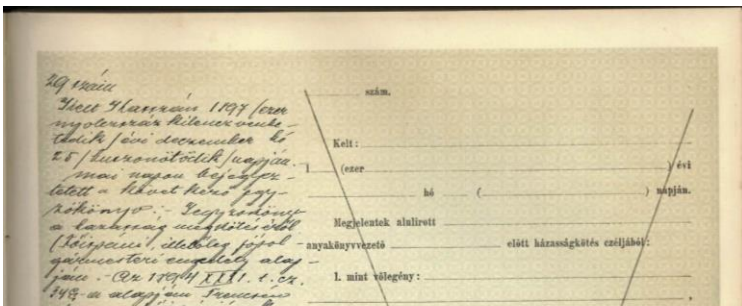 29 szám
Kelt 1897 (ezer
nyolczszáz kilenczvenhe-
tedik) évi deczember hó
25 (huszonötödik) napján.
mai napon bejegyez-
tetett a következő jegy-
zőkönyv: - Jegyzőkönyv
a házasság megkötéséről
(Főispáni, illetőleg polgármesteri engedély alap-
ján. - Az 1894 XXXI. t. cz.
34§-a alapján
szám.
Kelt:
1 (ezer ) évi
hó ( ) napján.
Megjelentek alulirott
anyakönyvvezető előtt házasságkötés czéljából:
1. mint vőlegény: